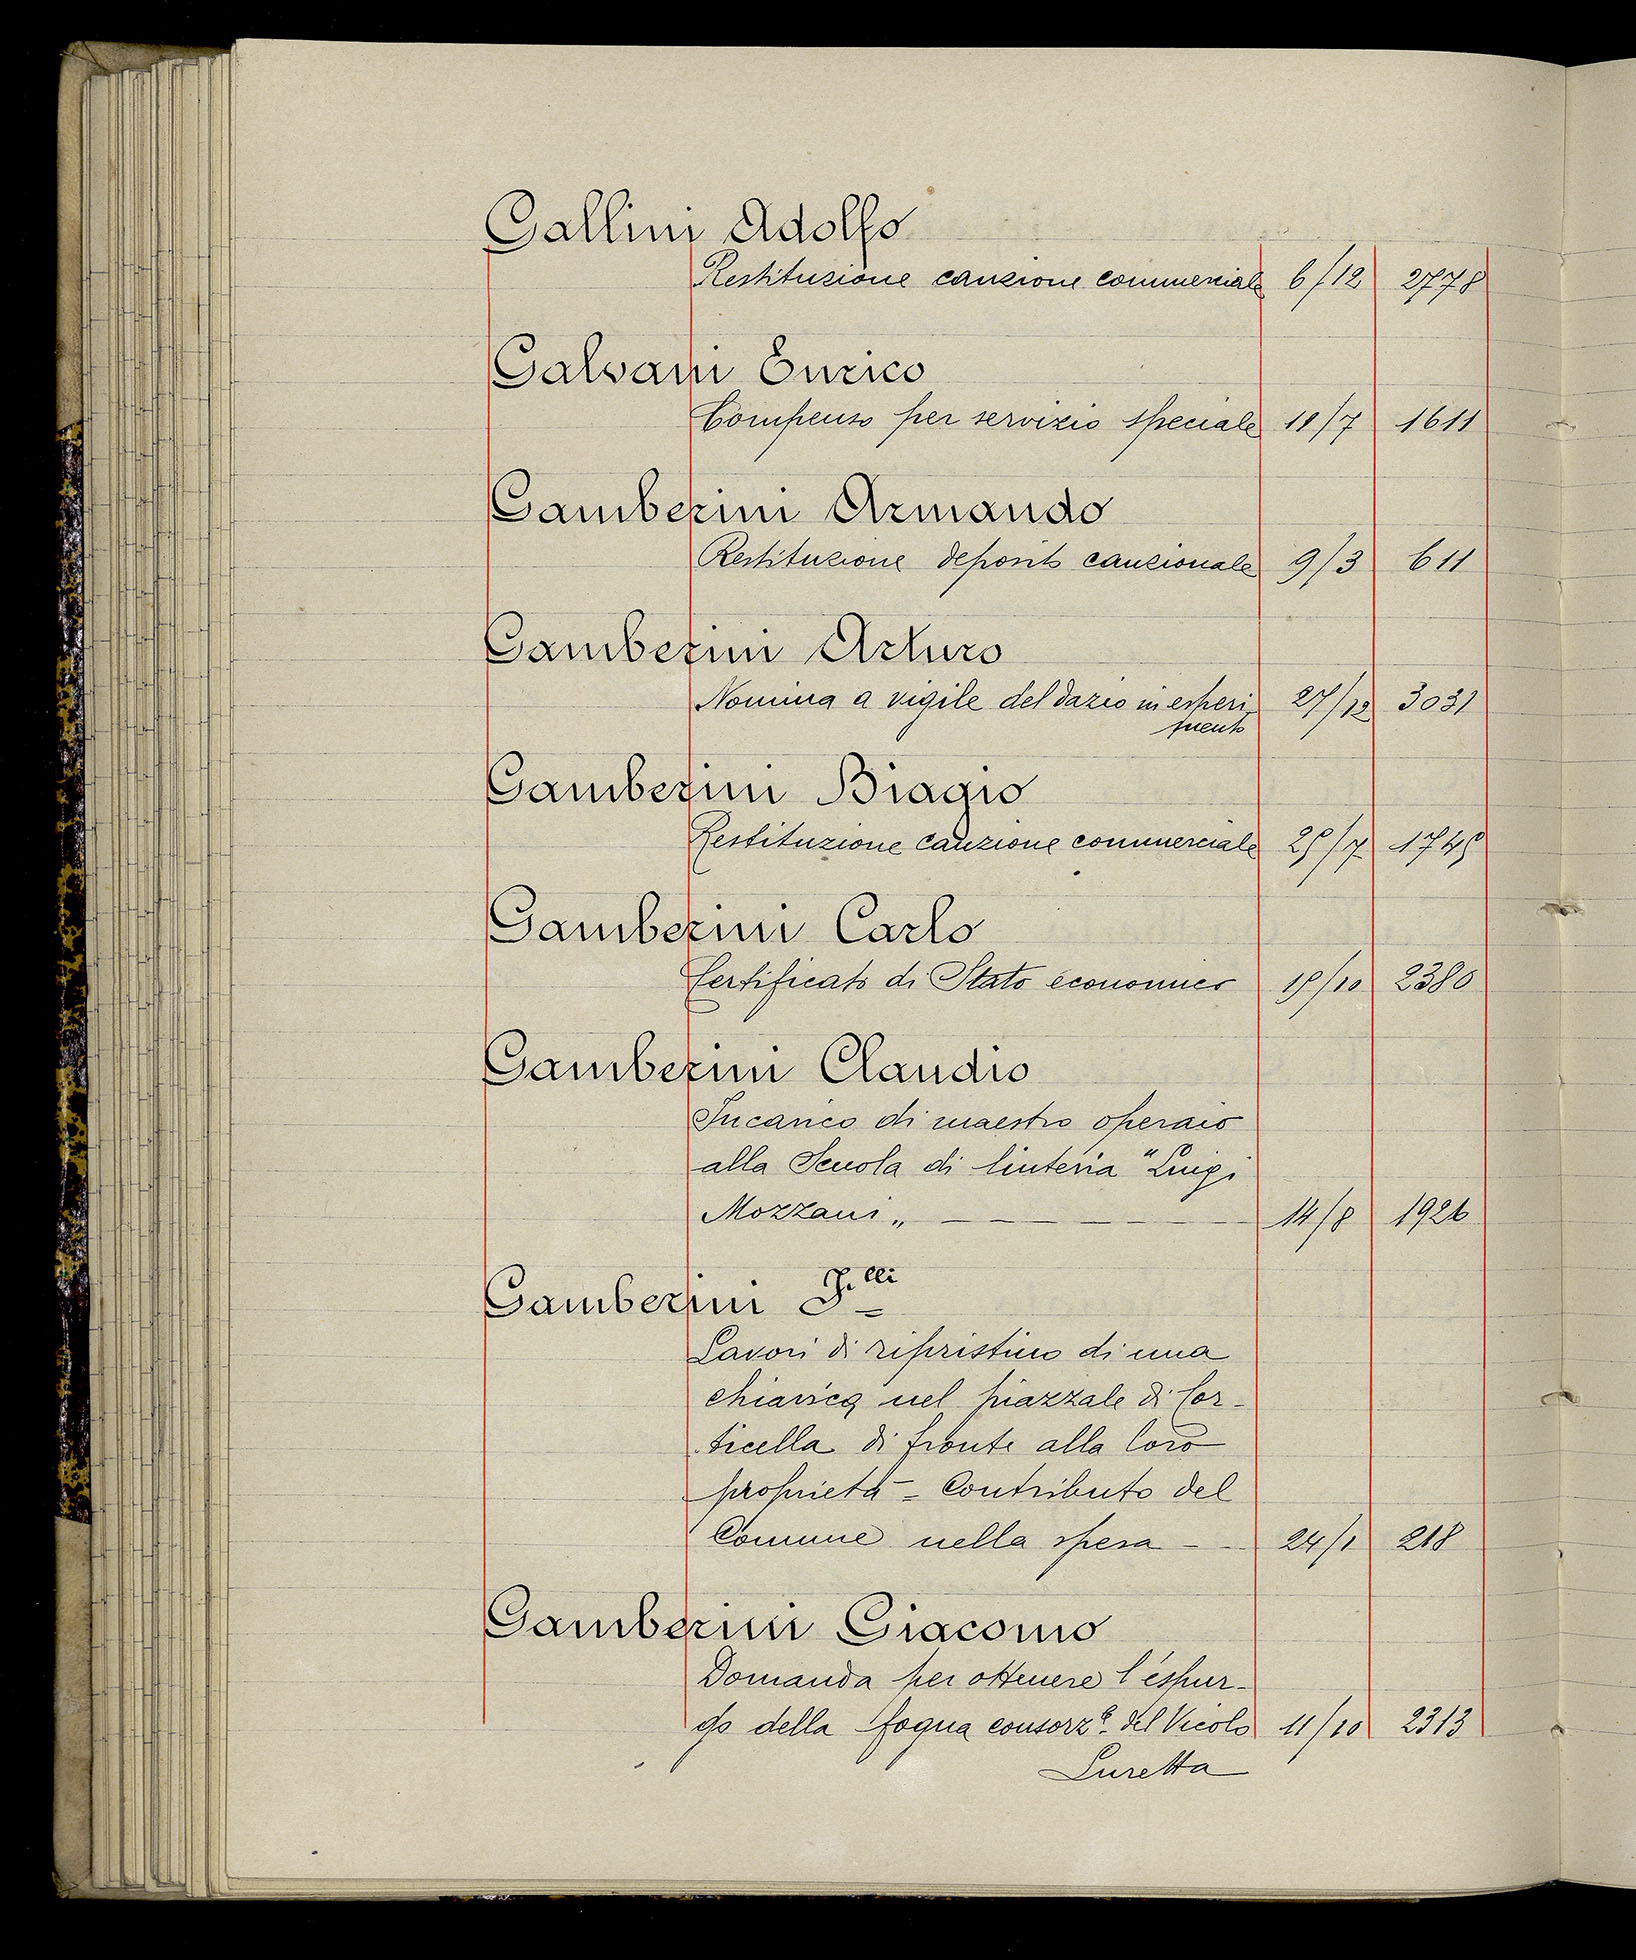 Gallini Adolfo
Restituzione cauzione commerciale 6/12 2778
Galvani Enrico
Compenso per servizio speciale 11/7 1611
Gamberini Armando
Restituzione deposito cauzionale 9/3 611
Gamberini Arturo
Nomina a vigile del dazio in esperi- 27/12 3031
mento
Gamberini Biagio
Restituzione cauzione commerciale 25/7 1745
Gamberini Carlo
Certificato di Stato economico 19/10 2380
Gamberini Claudio
Incarico di maestro operaio
alla Scuola di liuteria "Luigi
Mozzani„ 14/8 1926
Gamberini F.lli
Lavori di ripristino di una
chiavica nel piazzale di Cor-
ticella di fronte alla loro
proprietà - Contributo del
Comune nella spesa - 24/1 218
Gamberini Giacomo
Domanda per ottenere l'espur-
go della fogna consorz.e del Vicolo 11/10 2313
Luretta